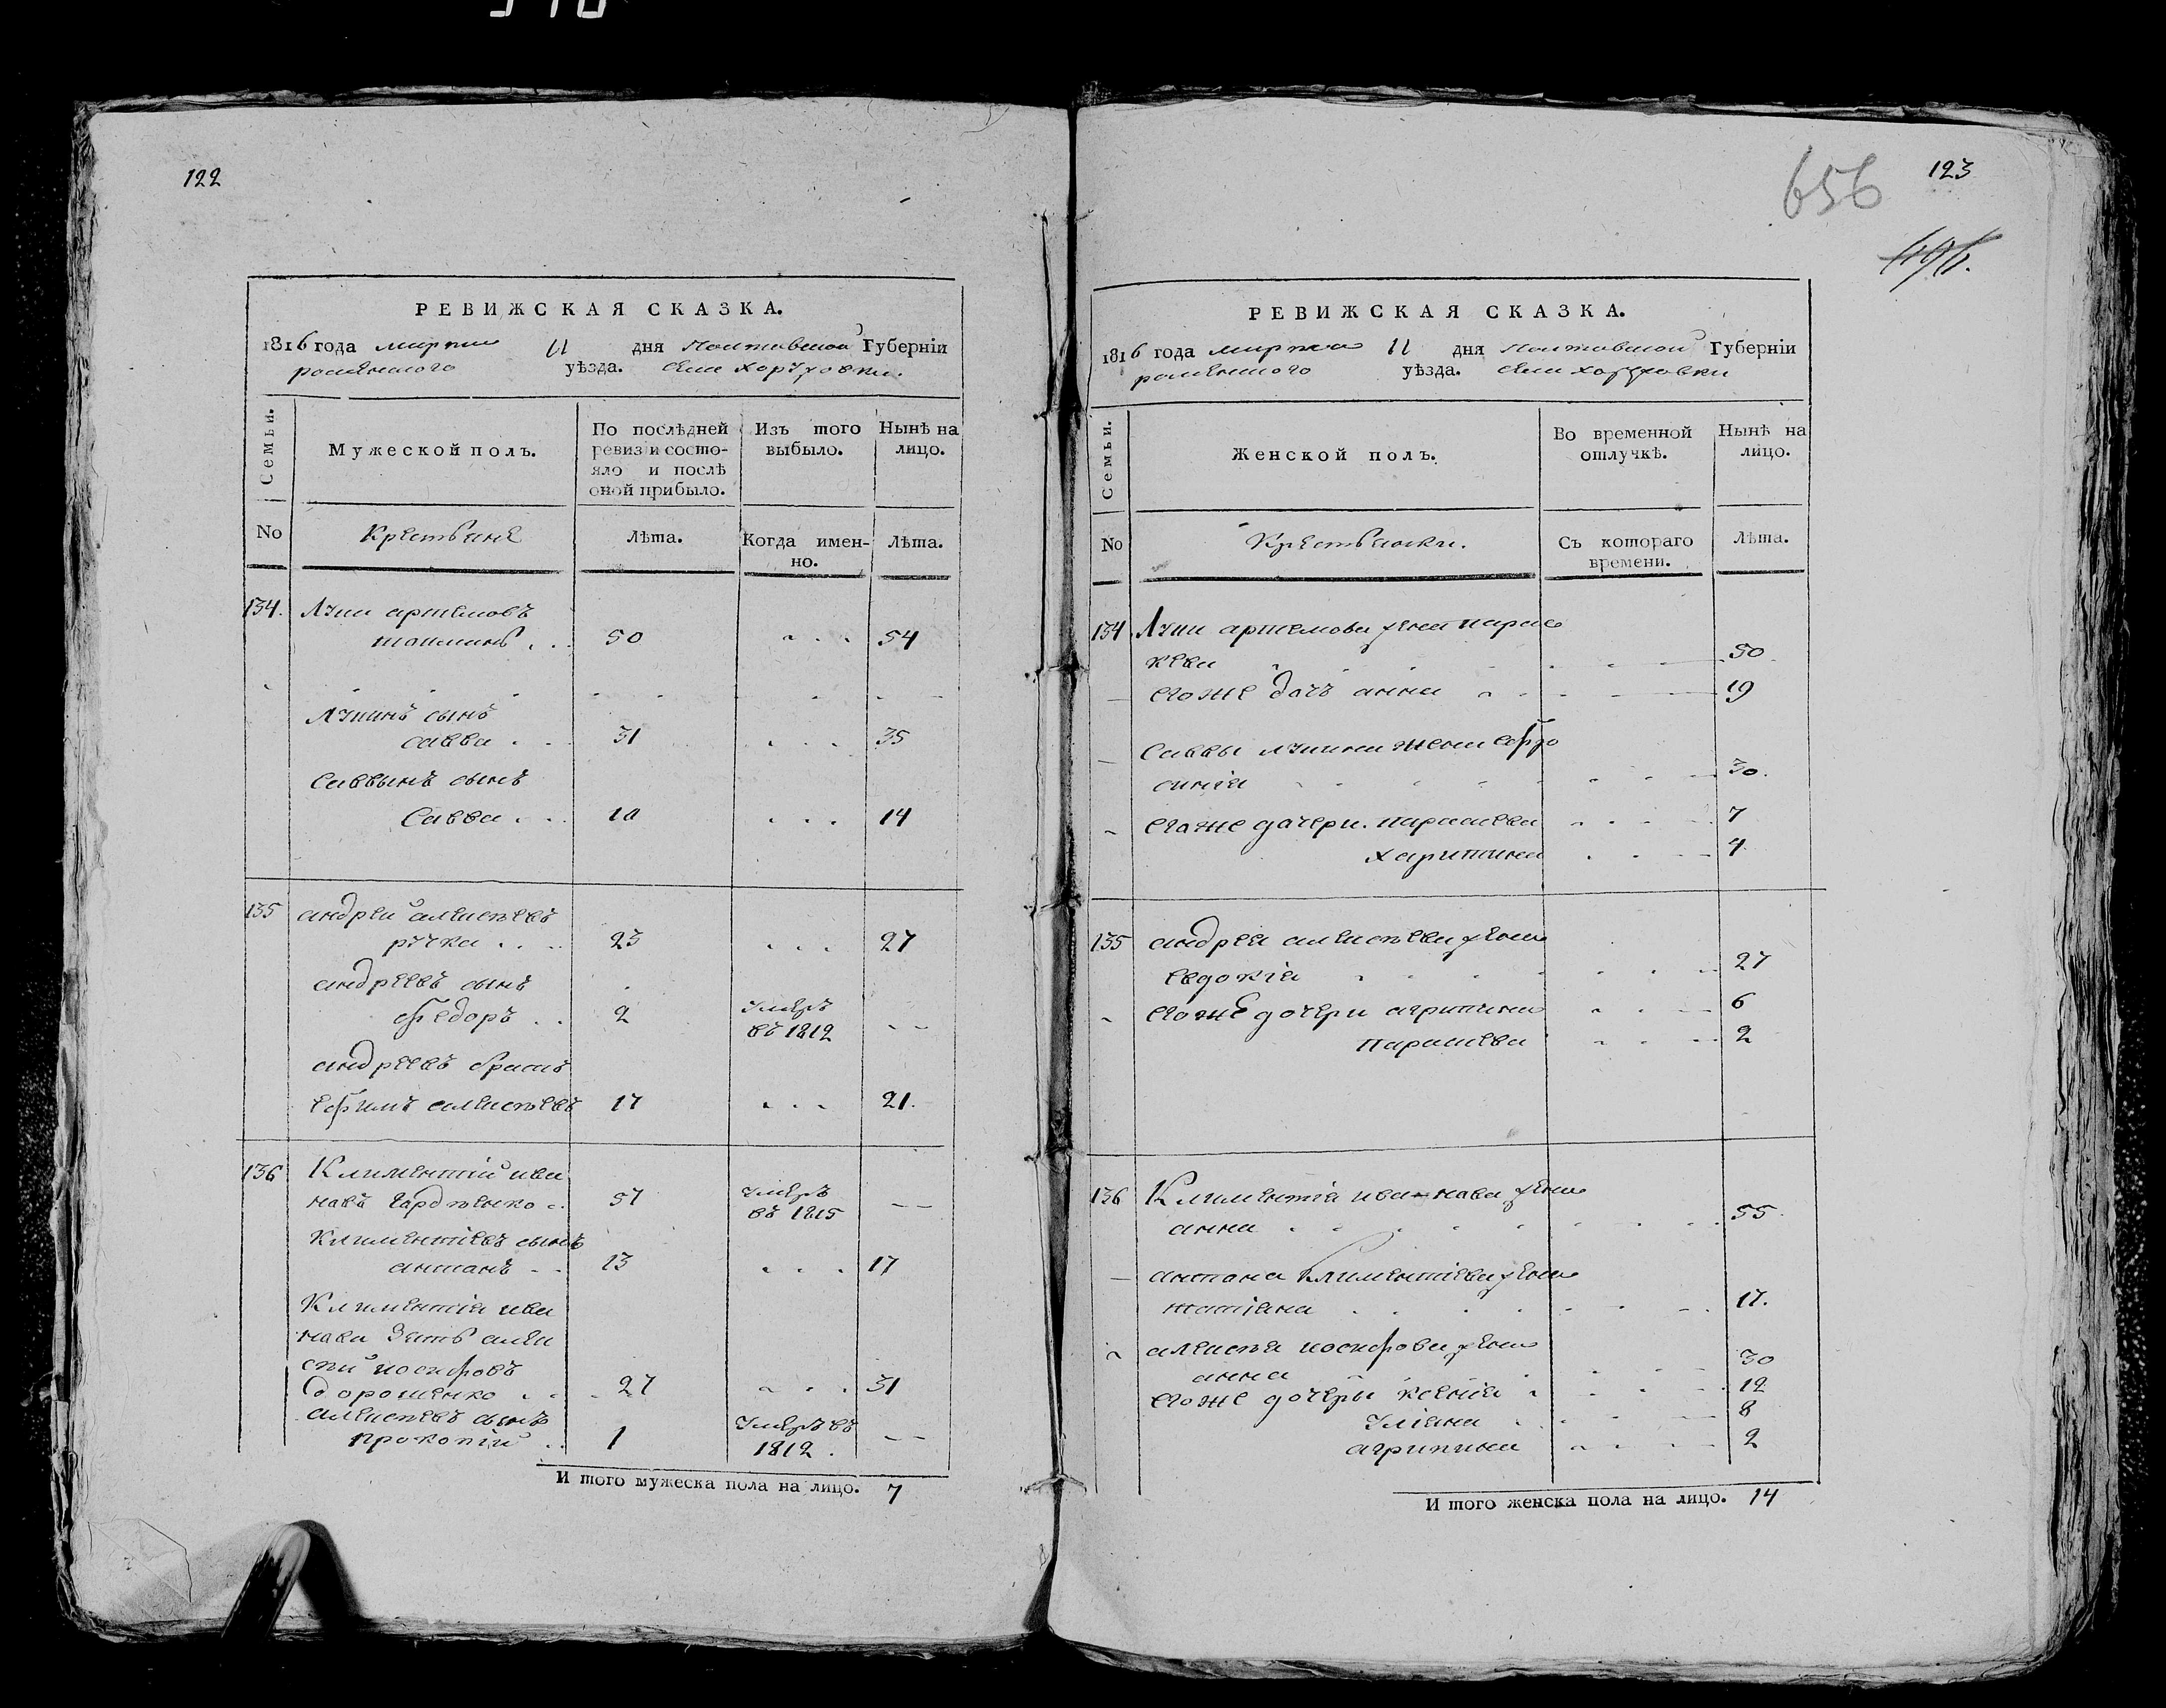 122
РЕВИЖСКАЯ СКАЗКА.
1816 года марта 11 дня Полтавской Губерніи
роменского уѣзда. села хоружовки.
Семьи.
Мужеской полъ.
По послѣдней ревизіи состояло и послѣ оной прибыло.
Изъ того выбыло.
Нынѣ на лицо.
No
Крестьяне
Лѣта.
Когда именно.
Лѣта.
134. Луки артемовъ
50 54
Лукинъ сынъ
савва 31 35
Саввынъ сынъ
Савва 10 14
135 андрей алексѣевъ
ручка 23 27
андреевъ сынъ
федоръ 2 умеръ въ 1812
андреевъ братъ
ефимъ алексѣевъ 17 21.
136 Климентій ива
новъ гордѣенко 57 умеръ въ 1815
Климентіевъ сынъ
антонъ 13 17
Климентія ива
нова зять алек
сѣй иосифовъ
дорошенко 27 31
алексѣевъ сынъ
прокопій 1 умеръ въ 1812.
И того мужеска пола на лицо. 7
656
123
РЕВИЖСКАЯ СКАЗКА.
1816 года марта 11 дня Полтавской Губерніи
роменского уѣзда. села хоружовки
Семьи.
Женской полъ.
Во временной отлучкѣ.
Нынѣ на лицо.
No
Крестьянки.
Съ котораго времени.
Лѣта.
134 Луки артемова жена парас
кева 50
его же дочь анна 19
Саввы лукина жена ефро
синія 30.
его же дочери. параскева 7
харитина 4
135 андрея алексѣева жена
евдокія 27
его же дочери агрипина 6
параскева 2
136 Климентія иванова жена
анна 55
антона Климентіева жена
татіана 17.
алексѣя иосифова жена
анна 30
его же дочеры ксенія 12
уліяна 8
агрипина 2
И того женска пола на лицо. 14